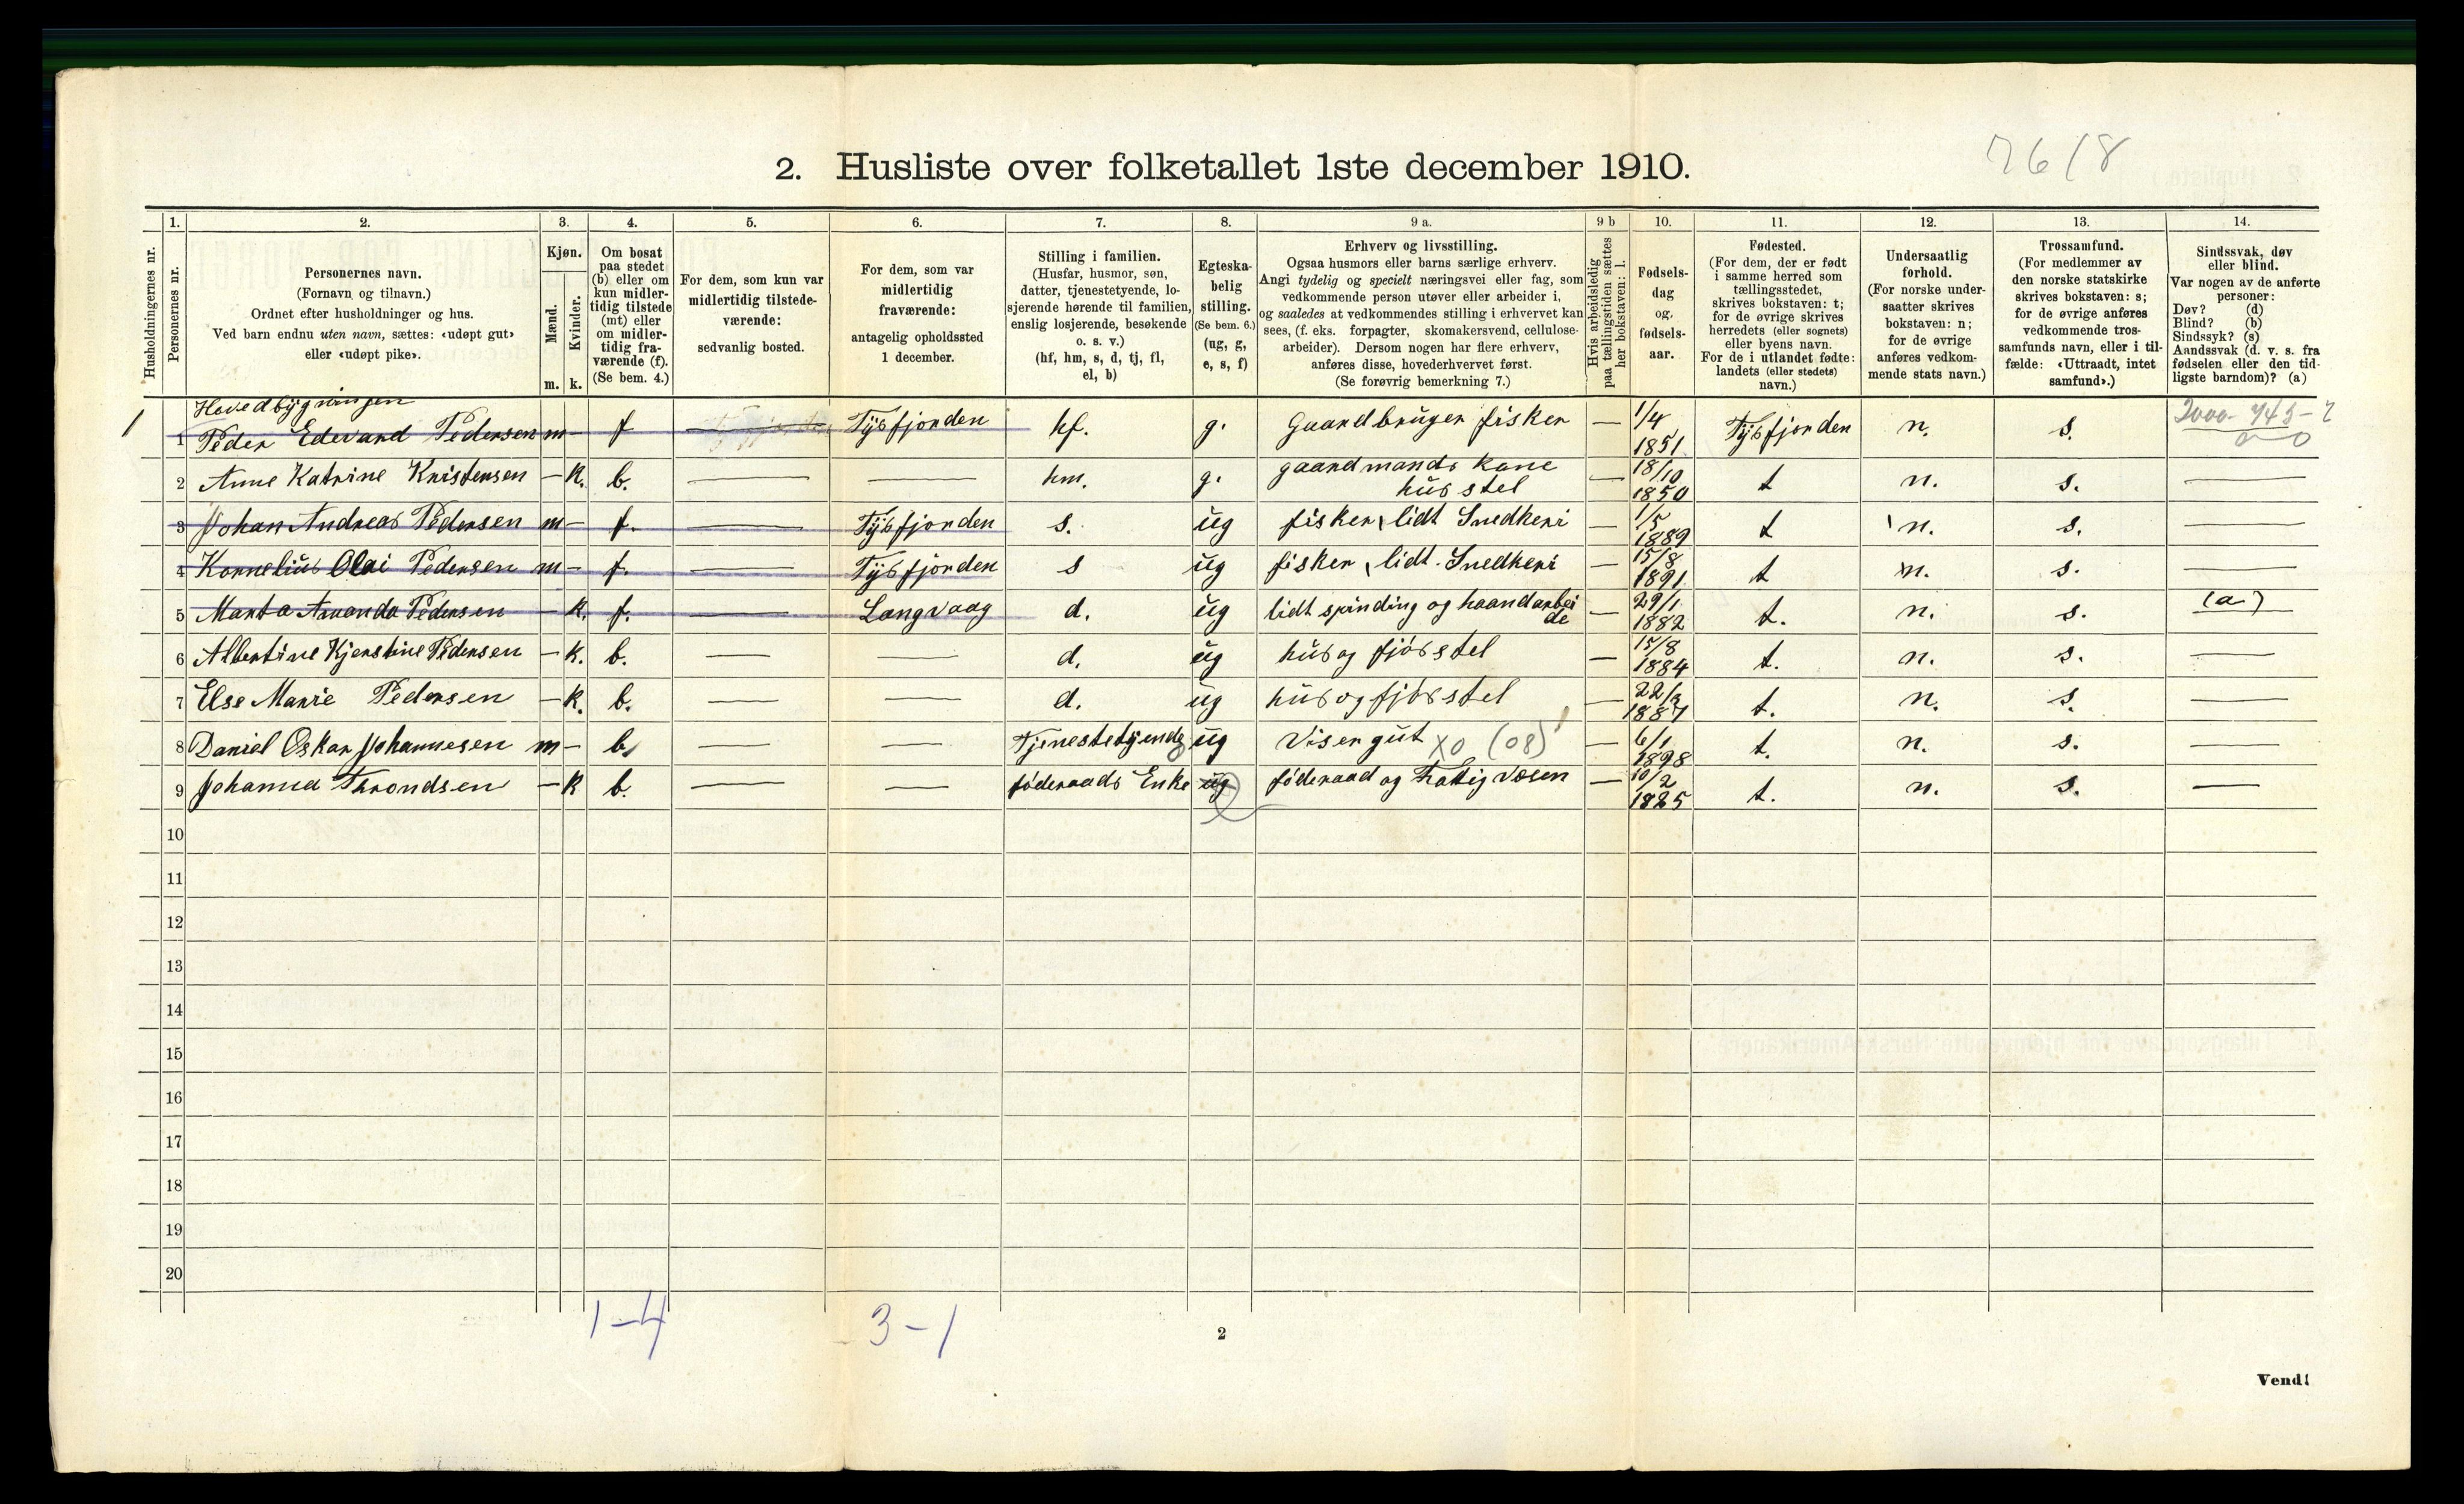 7618
2. Husliste over folketallet 1ste december 1910.
Husholdningernes nr.
1.
Personernes nr.
2.
Personernes navn.
(Fornavn og tilnavn.)
Ordnet efter husholdninger og hus.
Ved barn endnu uten navn, sættes: «udøpt gut»
eller «udøpt pike».
3.
Kjøn.
Mænd.
Kvinder.
m. k.
4.
Om bosat
paa stedet
(b) eller om
kun midler-
tidig tilstede
(mt) eller
om midler-
tidig fra-
værende (f).
(Se bem. 4.)
5.
For dem, som kun var
midlertidig tilstede-
værende:
sedvanlig bosted.
6.
For dem, som var
midlertidig
fraværende:
antagelig opholdssted
1 december.
7.
Stilling i familien.
(Husfar, husmor, søn,
datter, tjenestetyende, lo-
sjerende hørende til familien,
enslig losjerende, besøkende
o. s. v.)
(hf, hm, s, d, tj, fl,
el, b)
8.
Egteska-
belig
stilling.
(Se bem. 6.)
(ug, g,
e, s, f)
9 a.
Erhverv og livsstilling.
Ogsaa husmors eller barns særlige erhverv.
Angi tydelig og specielt næringsvei eller fag, som
vedkommende person utøver eller arbeider i,
og saaledes at vedkommendes stilling i erhvervet kan
sees, (f. eks. forpagter, skomakersvend, cellulose-
arbeider). Dersom nogen har flere erhverv,
anføres disse, hovederhvervet først.
(Se forøvrig bemerkning 7.)
9 b
Hvis arbeidsledig
paa tællingstiden sættes
her bokstaven: l.
10.
Fødsels-
dag
og
fødsels-
aar.
11.
Fødested.
(For dem, der er født
i samme herred som
tællingsstedet,
skrives bokstaven: t;
for de øvrige skrives
herredets (eller sognets)
eller byens navn.
For de i utlandet fødte:
landets (eller stedets)
navn.)
12.
Undersaatlig
forhold.
(For norske under-
saatter skrives
bokstaven: n;
for de øvrige
anføres vedkom-
mende stats navn.)
13.
Trossamfund.
(For medlemmer av
den norske statskirke
skrives bokstaven: s;
for de øvrige anføres
vedkommende tros-
samfunds navn, eller i til-
fælde: «Uttraadt, intet
samfund».)
14.
Sindssvak, døv
eller blind.
Var nogen av de anførte
personer:
Døv? (d)
Blind? (b)
Sindssyk? (s)
Aandssvak (d. v. s. fra
fødselen eller den tid-
ligste barndom)? (a)
Hovedbygningen
1 1 Peder Edevard Pedersen m — f — Tysfjorden hf. g. Gaardbruger fisker — 1/4 1851 Tysfjorden n. s.
2 Anne Katrine Kristensen — k. b. — — hm. g. gaardmands kone husstel — 18/10 1850 t n. s. —
3 Johan Andreas Pedersen m — f. — Tysfjorden s. ug fisker, lidt Snedkeri — 1/5 1889 t n. s. —
4 Kornelius Olai Pedersen m — f. — Tysfjorden s ug fisker, lidt Snedkeri — 15/8 1891 t n. s. —
5 Marta Amanda Pedersen — k. f. — Langvaag d. ug lidt spinding og haandarbeide — 29/1 1882 t. n. s. (a)
6 Albertine Kjerstine Pedersen — k. b. — — d. ug hus og fjøsstel — 15/8 1884 t. n. s. —
7 Else Marie Pedersen — k. b. — — d. ug hus og fjøsstel — 22/3 1887 t. n. s. —
8 Daniel Oskar Johannesen m — b. — — Tjenestetyende ug Visergut X0 (08) — 6/1 1898 t. n. s. —
9 Johanna Throndsen — k b. — — føderaads Enke ug føderaad og Fattigvæsen — 10/2 1825 t. n. s. —
10
11
12
13
14
15
16
17
18
19
20
1-4 3-1
2
Vend!